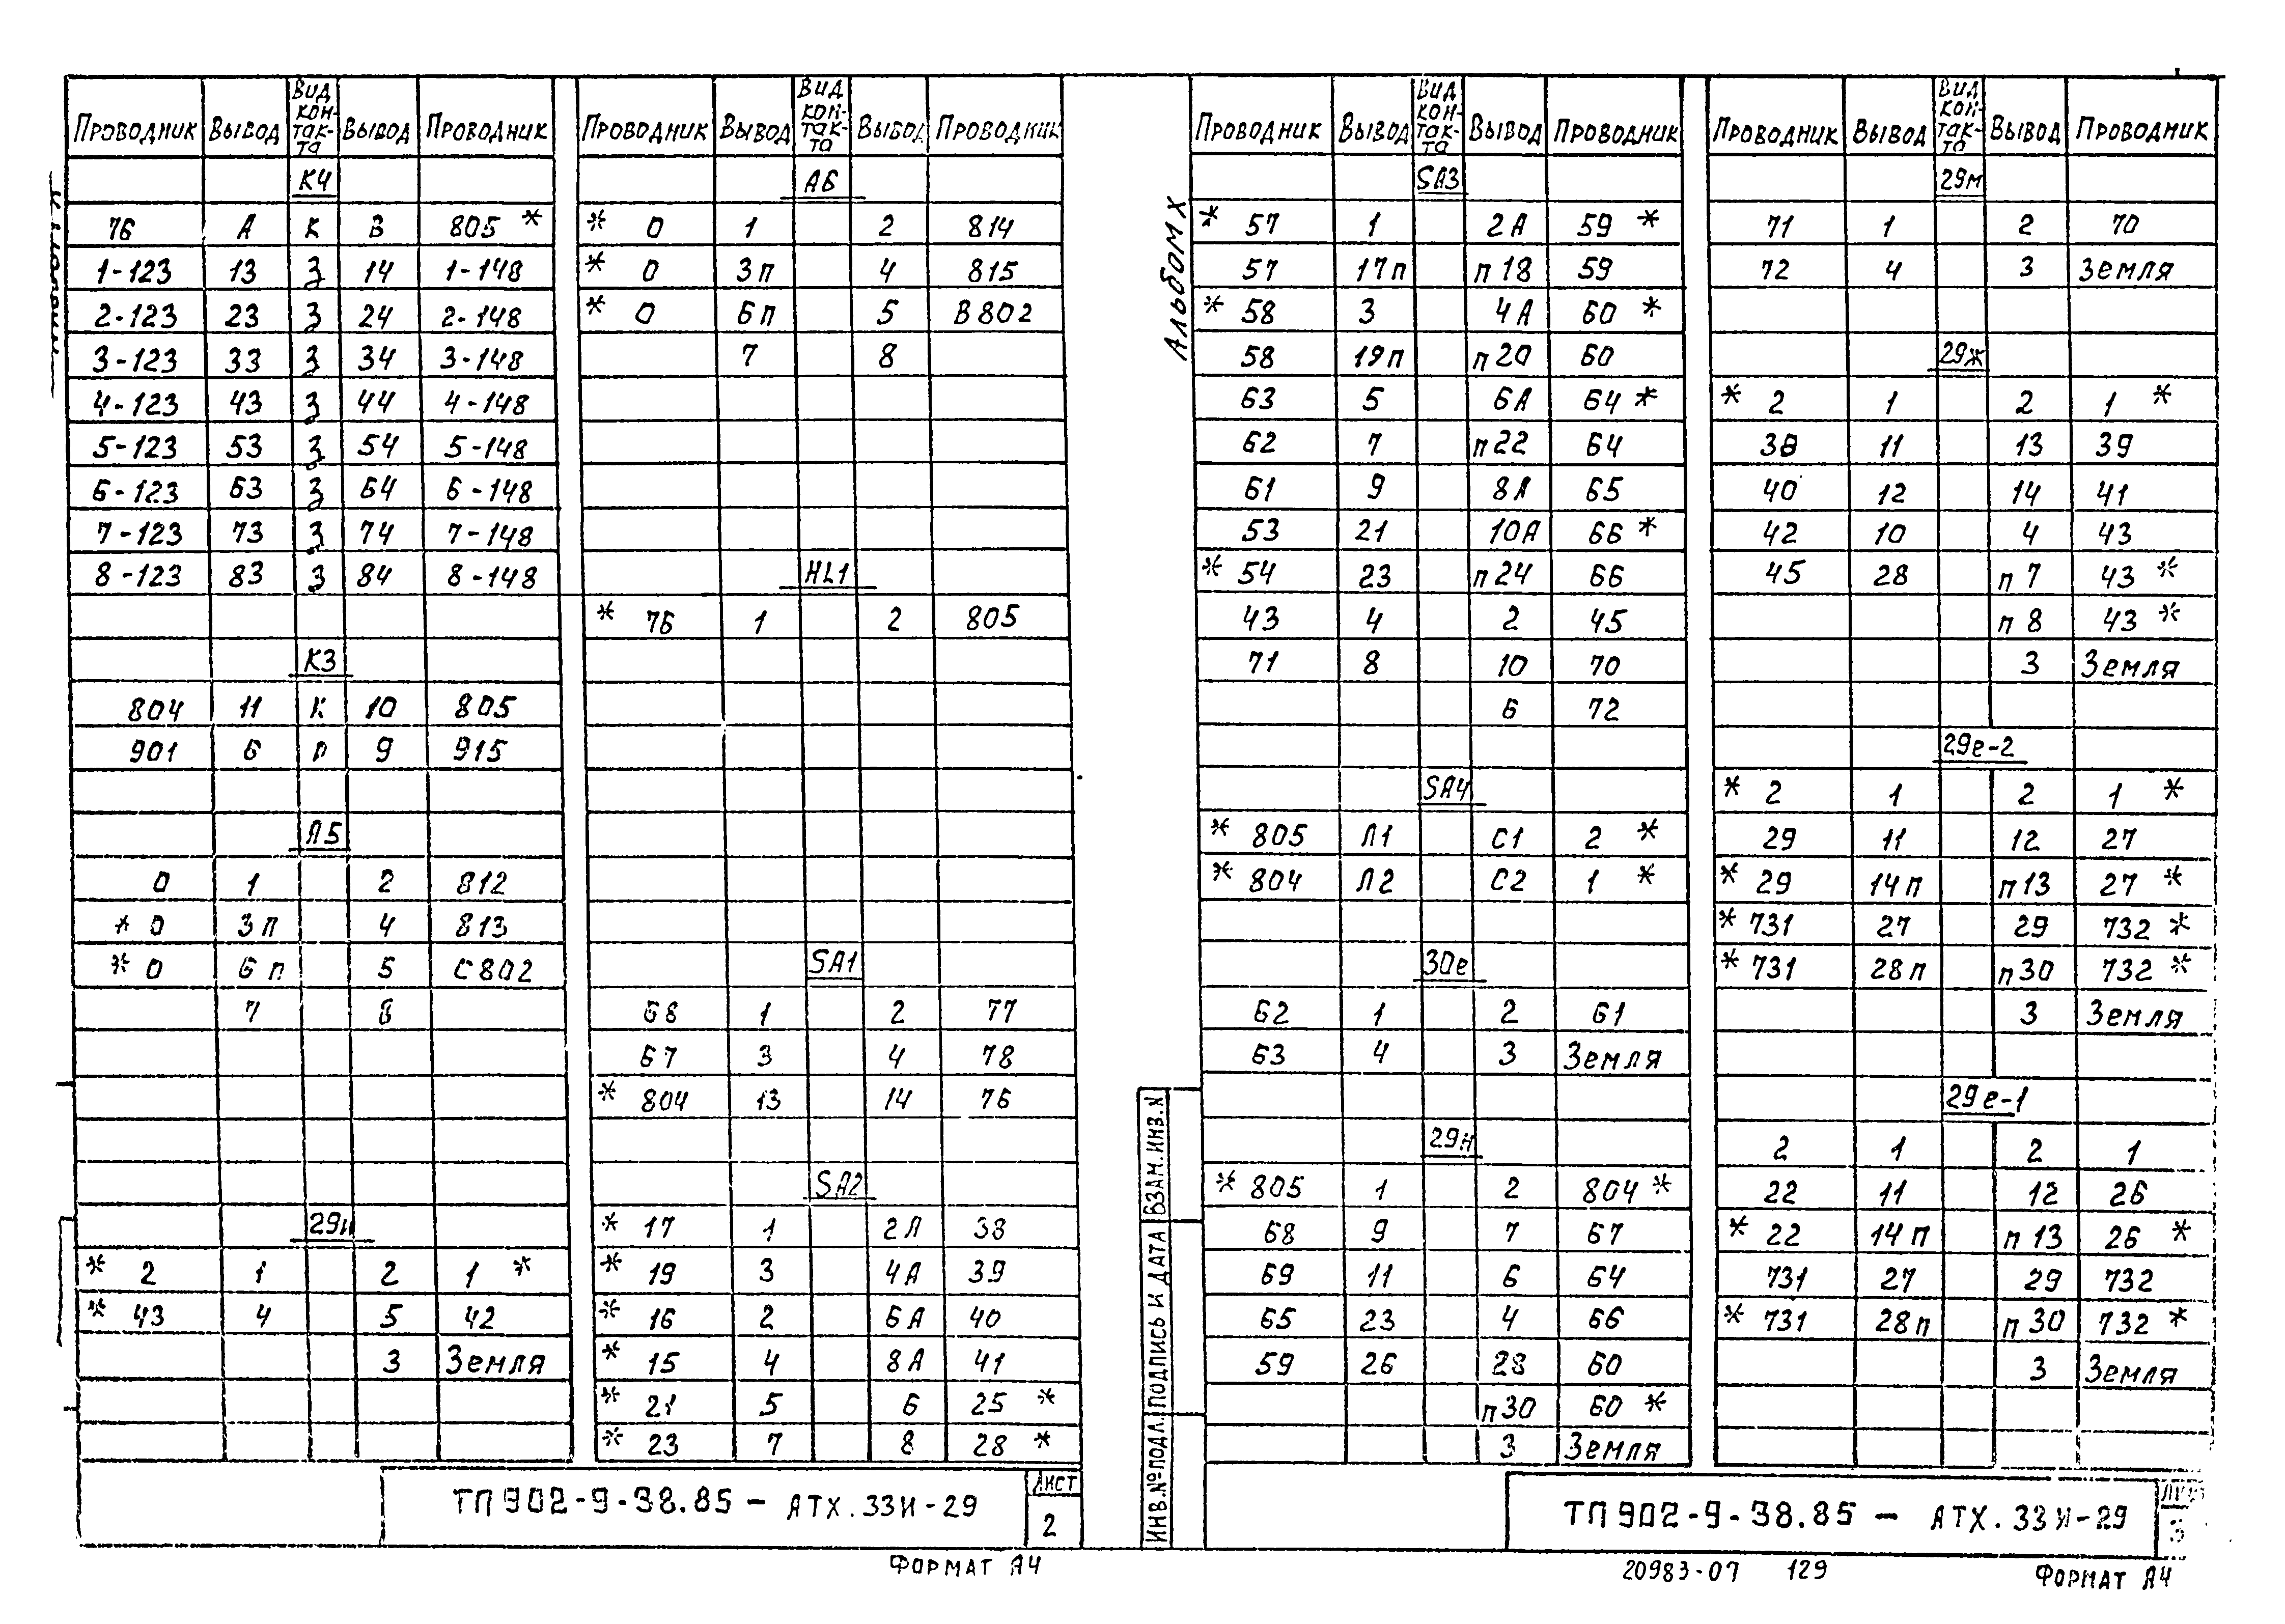 Проводник Вывод Вид контакта Вывод Проводник
К4
76 А К В 805 *
1-123 13 З 14 1-148
2-123 23 З 24 2-148
3-123 33 З 34 3-148
4-123 43 З 44 4-148
5-123 53 З 54 5-148
6-123 63 З 64 6-148
7-123 73 З 74 7-148
8-123 83 З 84 8-148
К3
804 11 К 10 805
901 6 п 9 915
А5
0 1 2 812
* 0 3п 4 813
* 0 6п 5 С802
7 8
29и
* 2 1 2 1 *
* 43 4 5 42
3 Земля
Проводник Вывод Вид контакта Вывод Проводник
А6
* 0 1 2 814
* 0 3п 4 815
* 0 6п 5 В802
7 8
HL1
* 76 1 2 805
SA1
68 1 2 77
67 3 4 78
* 804 13 14 76
SA2
* 17 1 2А 38
* 19 3 4А 39
* 16 2 6А 40
* 15 4 8А 41
* 21 5 6 25 *
* 23 7 8 28 *
ТП902-9-38.85 - АТХ.33И-29
Лист
2
Формат А4
Альбом X
Проводник Вывод Вид контакта Вывод Проводник
SA3
* 57 1 2А 59 *
57 17п п18 59
* 58 3 4А 60 *
58 19п п20 60
63 5 6А 64 *
62 7 п22 64
61 9 8А 65
53 21 10А 66 *
* 54 23 п24 66
43 4 2 45
71 8 10 70
6 72
SA4
* 805 Л1 С1 2 *
* 804 Л2 С2 1 *
30е
62 1 2 61
63 4 3 Земля
29н
* 805 1 2 804 *
68 9 7 67
69 11 6 64
65 23 4 66
59 26 28 60
п30 60 *
3 Земля
Проводник Вывод Вид контакта Вывод Проводник
29м
71 1 2 70
72 4 3 Земля
29ж
* 2 1 2 1 *
38 11 13 39
40 12 14 41
42 10 4 43
45 28 п7 43 *
п8 43 *
3 Земля
29е-2
* 2 1 2 1 *
29 11 12 27
* 29 14п п13 27 *
* 731 27 29 732 *
* 731 28п п30 732 *
3 Земля
29е-1
2 1 2 1
22 11 12 26
* 22 14п п13 26 *
731 27 29 732
* 731 28п п30 732 *
3 Земля
Инв.№подл. Подпись и дата Взам.инв.№
ТП902-9-38.85 - АТХ.33И-29
3
20983-07 129 Формат А4